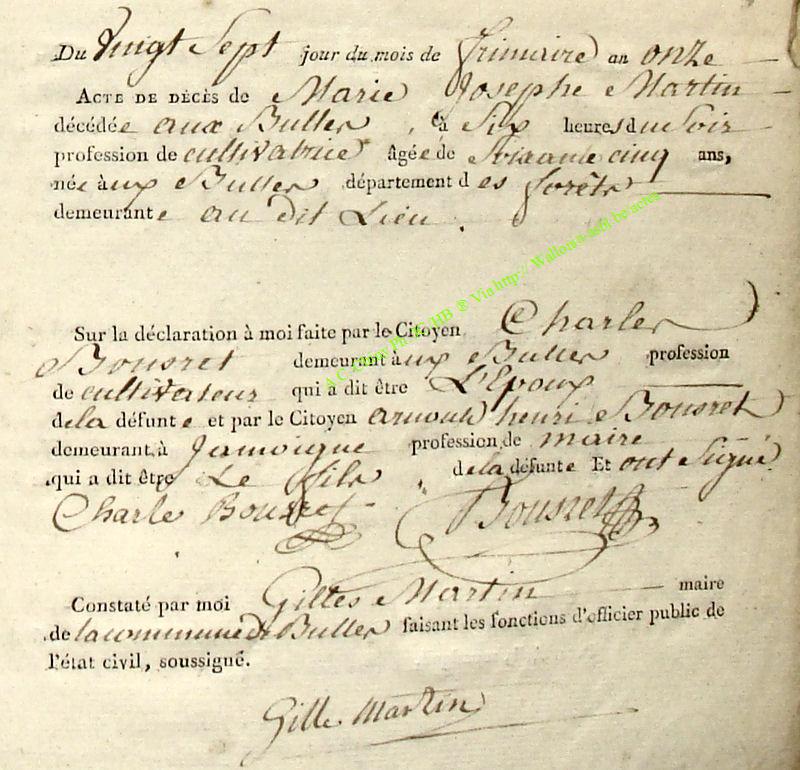 Du Vingt Sept jour du mois de frimaire an onze
ACTE DE DÉCÈS de Marie Josephe Martin
décédée aux Bulles, à Six heures du Soir
profession de cultivatrice âgée de Soixante cinq ans,
née aux Bulles département des forêts
demeurante au dit Lieu.
Sur la déclaration à moi faite par le Citoyen Charles
Bousret demeurant aux Bulles profession
de cultivateur qui a dit être L'Epoux
de la défunte et par le Citoyen arnould henri Bousret
demeurant à Jamoigne profession de maire
qui a dit être Le fils de la défunte Et ont Signé
Charle Bousret Bousret
Constaté par moi Gilles Martin maire
de la commune de Bulles faisant les fonctions d'officier public de
l'état civil, soussigné.
Gille Martin